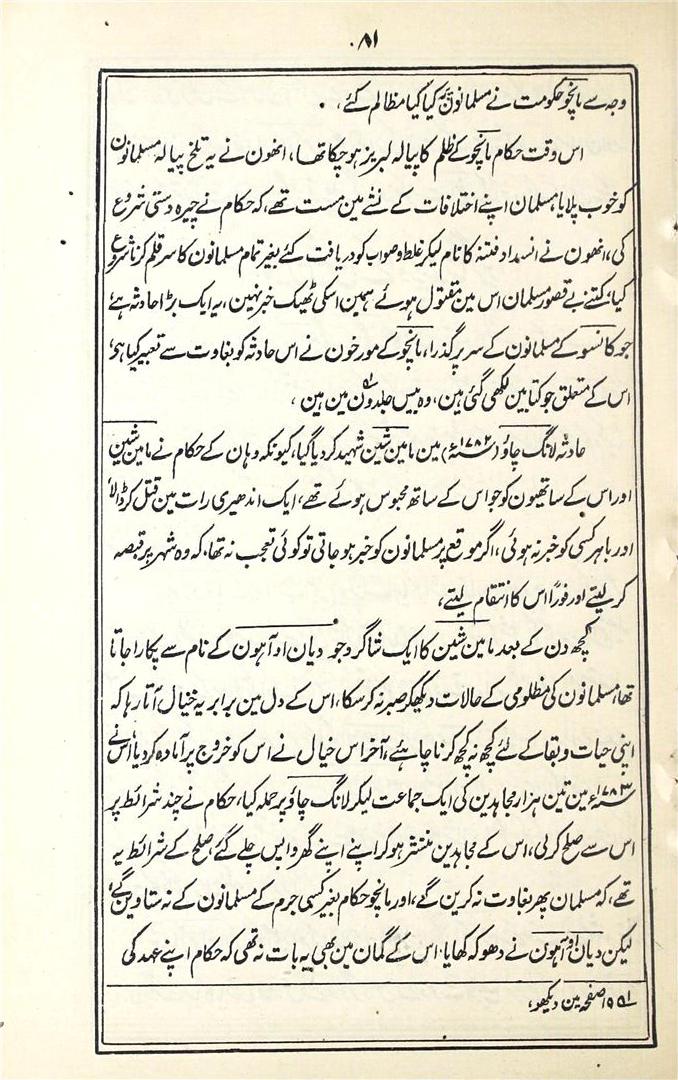 ۸۱
وجہ سے مانچو حکومت نے مسلمانون پر کیا کیا مظالم کئے،
اس وقت حکام مانچو کے ظلم کا پیالہ لبریز ہو چکا تھا، انھون نے یہ تلخ پیالہ مسلمانون
کو خوب پلایا، مسلمان اپنے اختلافات کے نشے مین مست تھے، کہ حکام نے چیرہ دستی شروع
کی، انھون نے انسداد فتنہ کا نام لیکر غلط و صواب کو دریافت کئے بغیر تمام مسلمانون کا سر قلم کرنا شروع
کیا، کتنے بے قصور مسلمان اس مین مقتول ہوئے ہمین اسکی ٹھیک خبر نہین، یہ ایک بڑا حادثہ ہے
جو کانسو کے مسلمانون کے سر پر گذرا، مانچو کے مورخون نے اس حادثہ کو بغاوت سے تعبیر کیا ہی،
اس کے متعلق جو کتابین لکھی گئی ہین، وہ بیس جلدون مین ہین،
حادثہ لانگ چاؤ (۱۷۸۲ء) مین مامین شین شہید کر دیا گیا، کیونکہ وہان کے حکام نے مامین شین
اور اس کے ساتھیون کو جو اس کے ساتھ محبوس ہوئے تھے، ایک اندھیری رات مین قتل کر ڈالا
اور باہر کسی کو خبر نہ ہوئی، اگر موقع پر مسلمانون کو خبر ہو جاتی تو کوئی تعجب نہ تھا، کہ وہ شہر پر قبضہ
کر لیتے اور فوراً اس کا انتقام لیتے،
کچھ دن کے بعد مامین شین کا ایک شاگرد جو دیان او آہون کے نام سے پکارا جاتا
تھا، مسلمانون کی مظلومی کے حالات دیکھکر صبر نہ کر سکا، اس کے دل مین برابر یہ خیال آتا رہا کہ
اپنی حیات و بقا کے لئے کچھ نہ کچھ کرنا چاہئے، آخر اس خیال نے اس کو خروج پر آمادہ کر دیا، اس نے
۱۷۸۳ء مین تین ہزار مجاہدین کی ایک جماعت لیکر لانگ چاؤ پر حملہ کیا، حکام نے چند شرائط پر
اس سے صلح کر لی، اس کے مجاہدین منتشر ہو کر اپنے اپنے گھر واپس چلے گئے، صلح کے شرائط یہ
تھے، کہ مسلمان پھر بغاوت نہ کرین گے، اور مانچو حکام بغیر کسی جرم کے مسلمانون کے نہ ستاوین گے،
لیکن دیان او آہون نے دھوکہ کھایا، اس کے گمان مین بھی یہ بات نہ تھی کہ حکام اپنے عہد کی
صفحہ مین دیکھو،